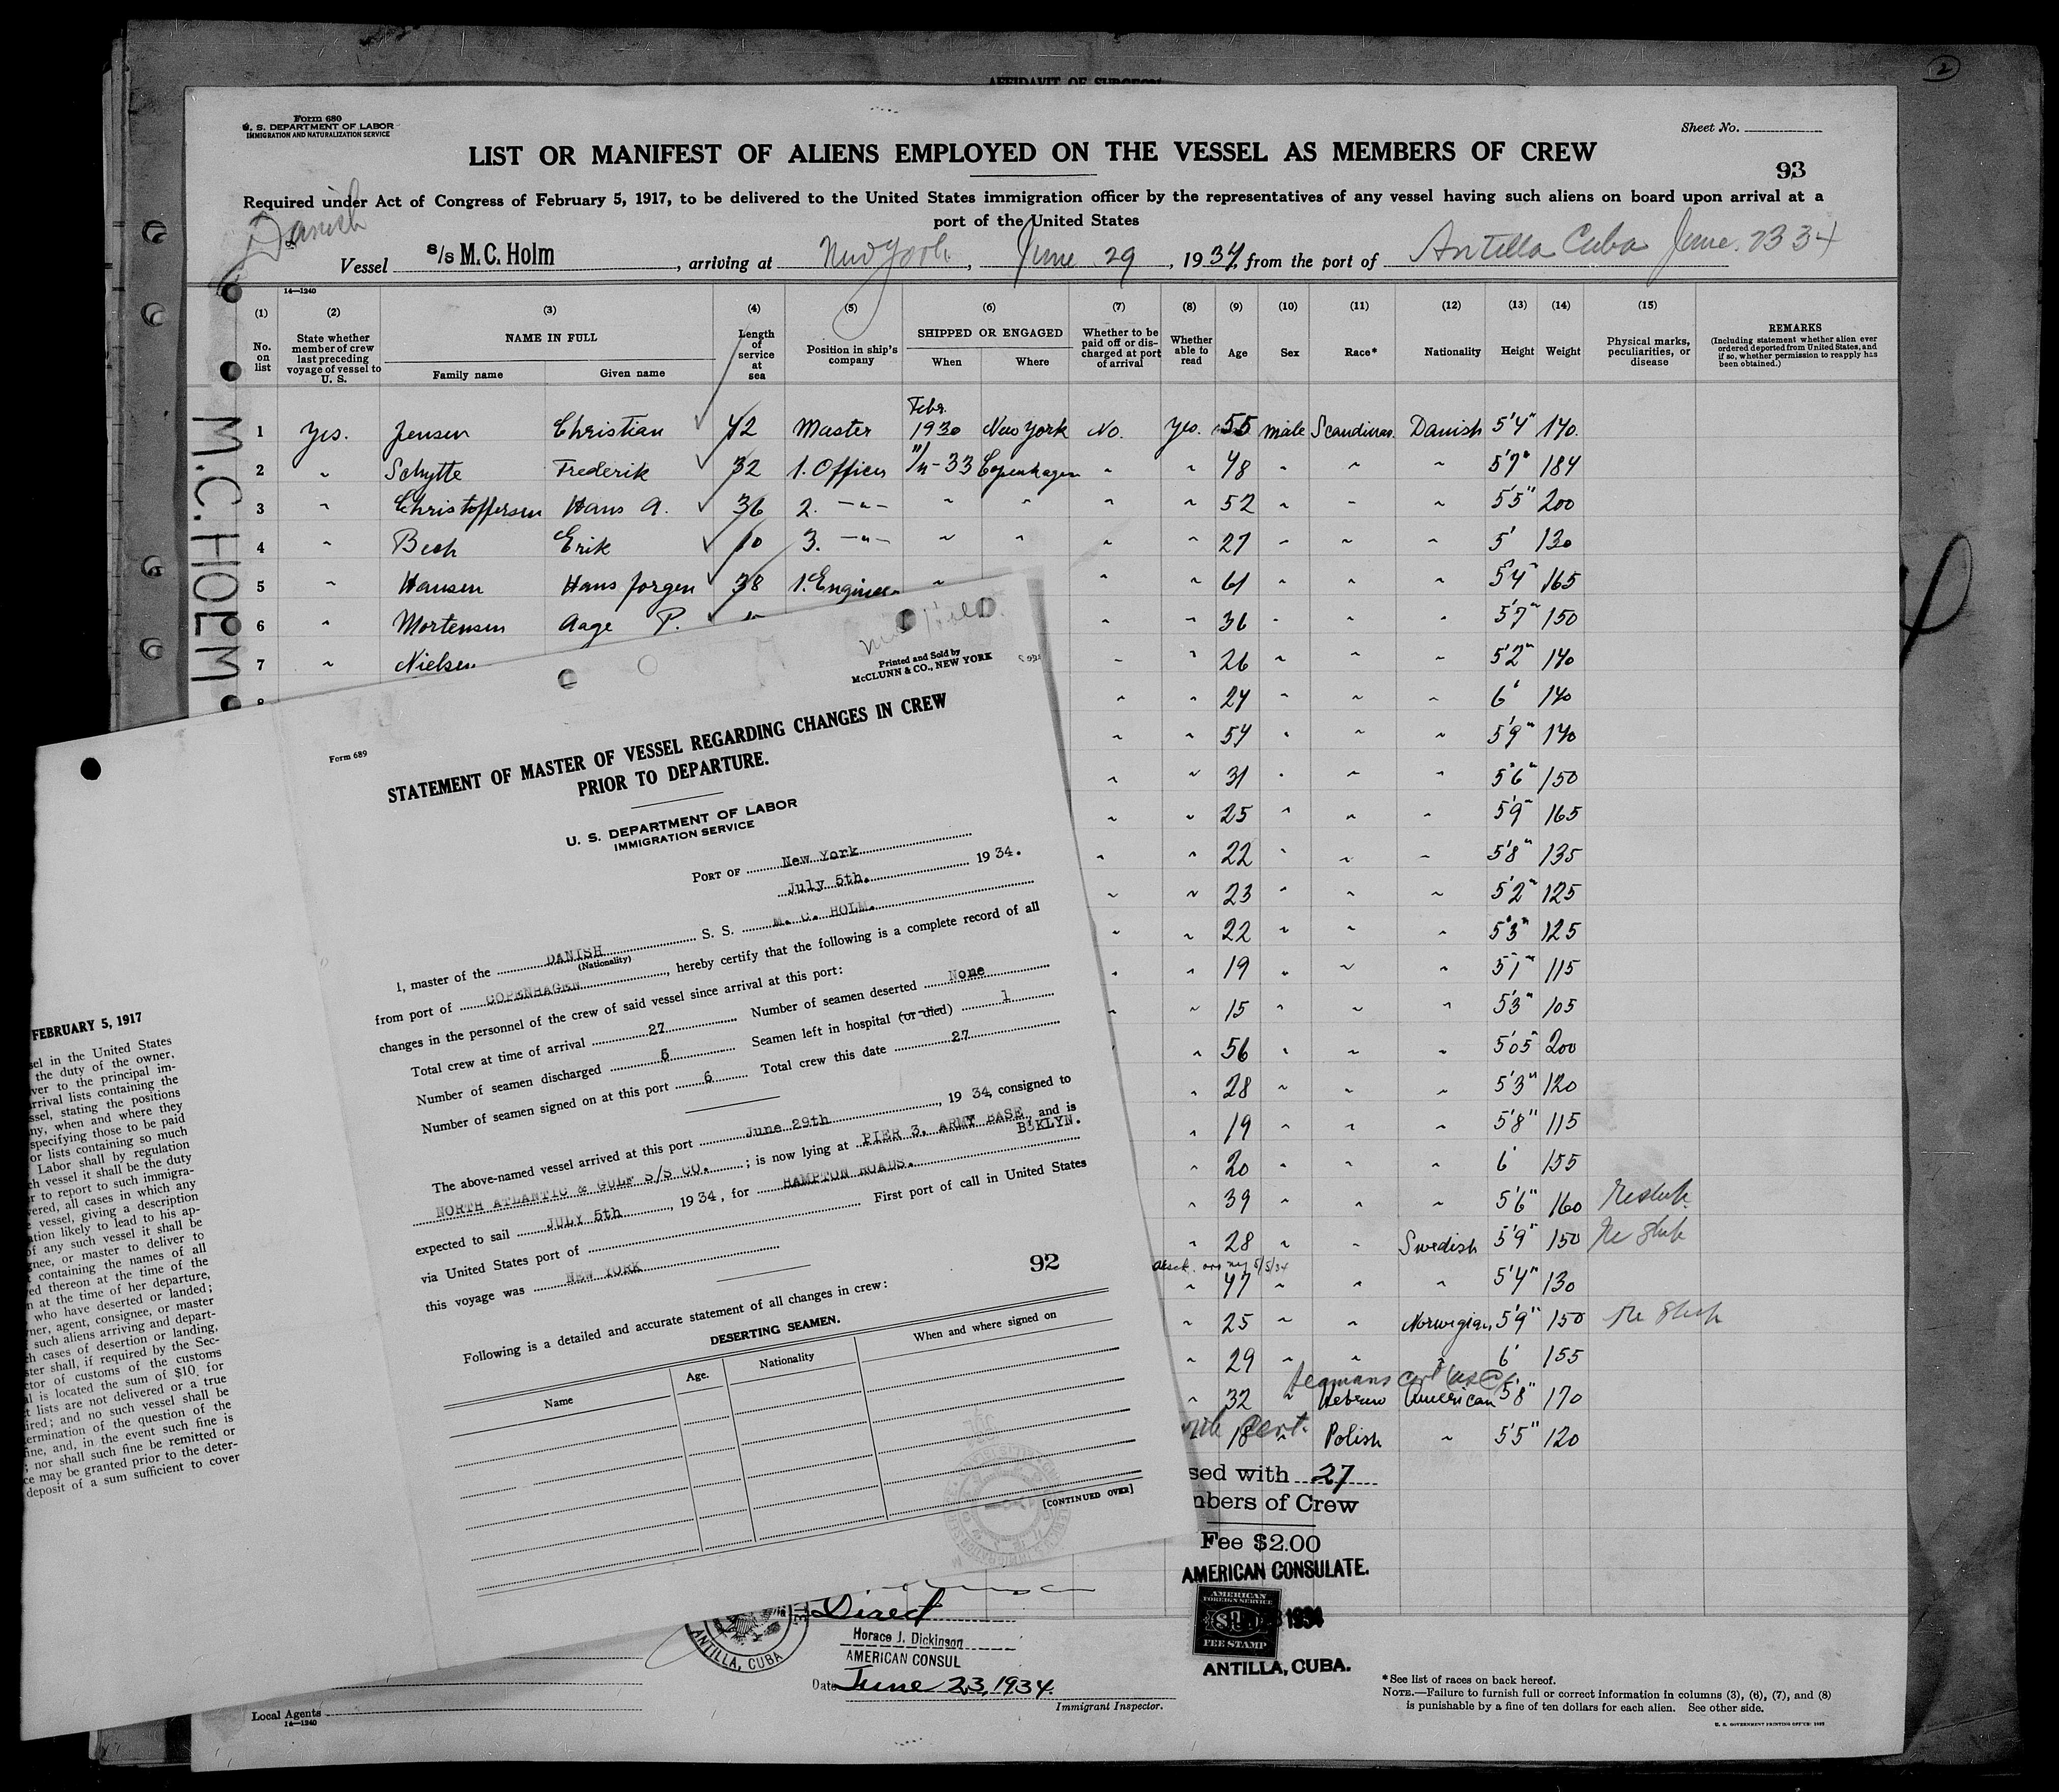 AFFIDAVIT OF SURGEON
2
Form 680
U. S. DEPARTMENT OF LABOR
IMMIGRATION AND NATURALIZATION SERVICE
Sheet No.
LIST OR MANIFEST OF ALIENS EMPLOYED ON THE VESSEL AS MEMBERS OF CREW
93
Required under Act of Congress of February 5, 1917, to be delivered to the United States immigration officer by the representatives of any vessel having such aliens on board upon arrival at a
port of the United States
Danish
Vessel S/S M. C. Holm, arriving at New York, June 29, 1934, from the port of Antilla Cuba June 23 34
14—1240
(1) (2) (3) (4) (5) (6) (7) (8) (9) (10) (11) (12) (13) (14) (15)
No. on list
State whether member of crew last preceding voyage of vessel to U. S.
NAME IN FULL
Family name
Given name
Length of service at sea
Position in ship's company
SHIPPED OR ENGAGED
When
Where
Whether to be paid off or discharged at port of arrival
Whether able to read
Age
Sex
Race*
Nationality
Height
Weight
Physical marks, peculiarities, or disease
REMARKS
(Including statement whether alien ever ordered deported from United States, and if so, whether permission to reapply has been obtained.)
M.C. HOLM
1 Yes. Jensen Christian 42 Master Febr. 1930 New York No. Yes. 55 male Scandinav. Danish 5'4" 140.
2 " Schytte Frederik 32 1. Officer 11/11-33 Copenhagen " " 48 " " " 5'7" 184
3 " Christoffersen Hans A. 36 2. —"— " " " " 52 " " " 5'5" 200
4 " Bech Erik 10 3. —"— " " " " 27 " " " 5' 130
5 " Hansen Hans Jorgen 38 1. Engineer " " " 61 " " " 5'4" 165
6 " Mortensen Aage P. " " 36 " " " 5'7" 150
7 " Nielsen " " 26 " " " 5'2" 140
8 " " 24 " " " 6' 140
" " 54 " " " 5'9" 140
" " 31 " " " 5'6" 150
" " 25 " " " 5'9" 165
" " 22 " " " 5'8" 135
" " 23 " " " 5'2" 125
" " 22 " " " 5'3" 125
" " 19 " " " 5'1" 115
" " 15 " " " 5'3" 105
" 56 " " " 5'05" 200
" 28 " " " 5'3" 120
" 19 " " " 5'8" 115
" 20 " " " 6' 155
" 39 " " " 5'6" 160 Reship.
" 28 " " Swedish 5'9" 150 Re Ship
5/5/34
" 47 " " " 5'4" 130
" 25 " " Norwegian 5'9" 150 Re Ship
" 29 " " " 6' 155
Seamans cert
" 32 " Hebrew American 5'8" 170
cert.
18 " Polish " 5'5" 120
sed with 27
nbers of Crew
Fee $2.00
AMERICAN CONSULATE.
AMERICAN
FOREIGN SERVICE
FEE STAMP
1934
ANTILLA, CUBA.
Direct
ANTILLA, CUBA
Horace J. Dickinson
AMERICAN CONSUL
Date June 23, 1934.
Immigrant Inspector.
Local Agents
14—1240
*See list of races on back hereof.
NOTE.—Failure to furnish full or correct information in columns (3), (6), (7), and (8)
is punishable by a fine of ten dollars for each alien. See other side.
U. S. GOVERNMENT PRINTING OFFICE: 1932
Printed and Sold by
McCLUNN & CO., NEW YORK
Form 689
STATEMENT OF MASTER OF VESSEL REGARDING CHANGES IN CREW
PRIOR TO DEPARTURE.
U. S. DEPARTMENT OF LABOR
IMMIGRATION SERVICE
PORT OF New York
July 5th. 1934.
I, master of the DANISH S. S. M. C. HOLM.
(Nationality)
from port of COPENHAGEN, hereby certify that the following is a complete record of all
changes in the personnel of the crew of said vessel since arrival at this port:
Total crew at time of arrival 27 Number of seamen deserted None
Number of seamen discharged 5 Seamen left in hospital (or died) 1
Number of seamen signed on at this port 6 Total crew this date 27
The above-named vessel arrived at this port June 29th, 1934, consigned to
NORTH ATLANTIC & GULF S/S CO.; is now lying at PIER 3, ARMY BASE, BKLYN. and is
expected to sail JULY 5th, 1934, for HAMPTON ROADS.
via United States port of First port of call in United States
this voyage was NEW YORK
92
Following is a detailed and accurate statement of all changes in crew:
DESERTING SEAMEN.
Name Age. Nationality When and where signed on
[CONTINUED OVER]
FEBRUARY 5, 1917
sel in the United States
the duty of the owner,
ver to the principal im-
rrival lists containing the
ssel, stating the positions
ny, when and where they
specifying those to be paid
or lists containing so much
Labor shall by regulation
ch vessel it shall be the duty
r to report to such immigra-
vered, all cases in which any
e vessel, giving a description
ation likely to lead to his ap-
of any such vessel it shall be
nee, or master to deliver to
containing the names of all
ed thereon at the time of the
n at the time of her departure,
who have deserted or landed;
ner, agent, consignee, or master
such aliens arriving and depart-
ch cases of desertion or landing,
ster shall, if required by the Sec-
ctor of customs of the customs
al is located the sum of $10, for
t lists are not delivered or a true
ired; and no such vessel shall be
ermination of the question of the
fine, and, in the event such fine is
; nor shall such fine be remitted or
ce may be granted prior to the deter-
deposit of a sum sufficient to cover